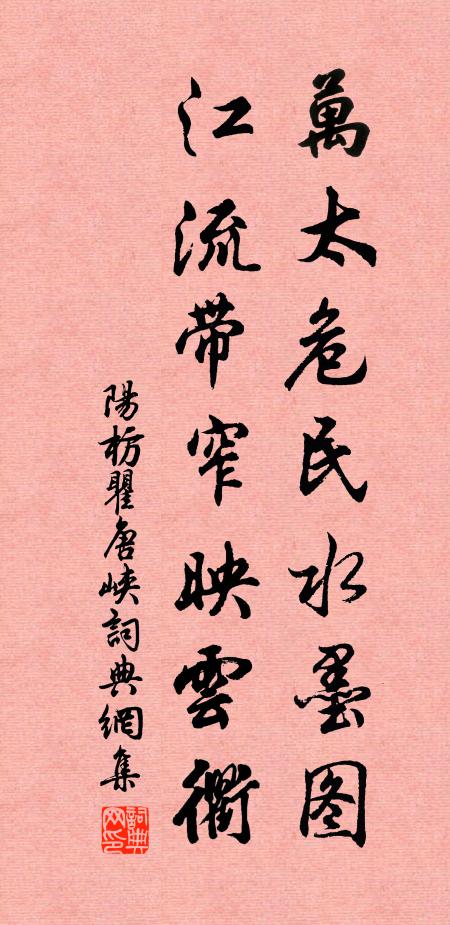 萬太危民水墨图
江流带窄映雲衢
陽枋瞿唐峡詞典網集
詞典网印